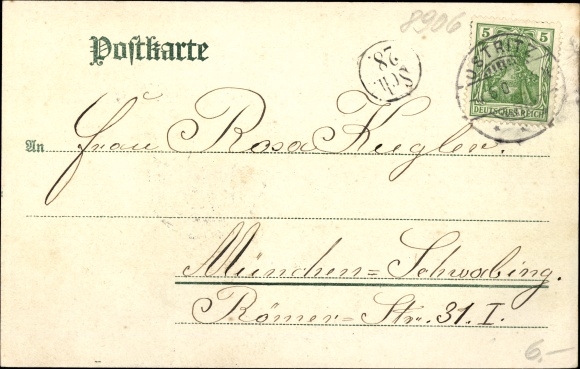 8906
Postkarte
28
Sch.
OSTRITZ
5 5
DEUTSCHES REICH
An Frau Rosa Kugler.
München=Schwabing.
Römer=Str. 31. I.
6,–